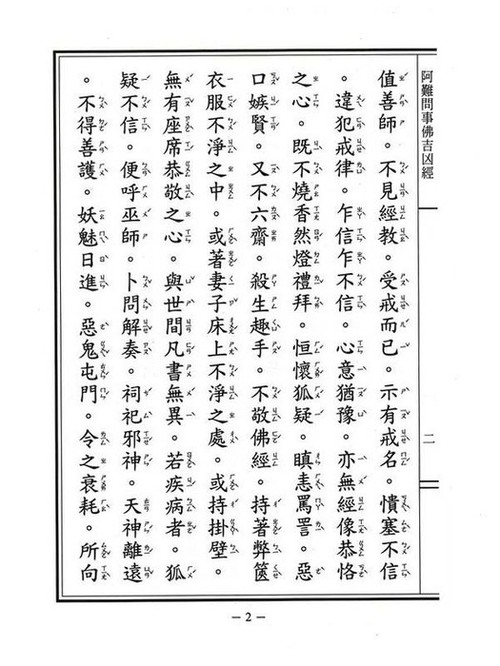 阿難問事佛吉凶經
二
值善師。不見經教。受戒而已。示有戒名。憒塞不信
。違犯戒律。乍信乍不信。心意猶豫。亦無經像恭恪
之心。既不燒香然燈禮拜。恒懷狐疑。瞋恚罵詈。惡
口嫉賢。又不六齋。殺生趣手。不敬佛經。持著弊篋
衣服不淨之中。或著妻子床上不淨之處。或持掛壁。
無有座席恭敬之心。與世間凡書無異。若疾病者。狐
疑不信。便呼巫師。卜問解奏。祠祀邪神。天神離遠
。不得善護。妖魅日進。惡鬼屯門。令之衰耗。所向
— 2 —